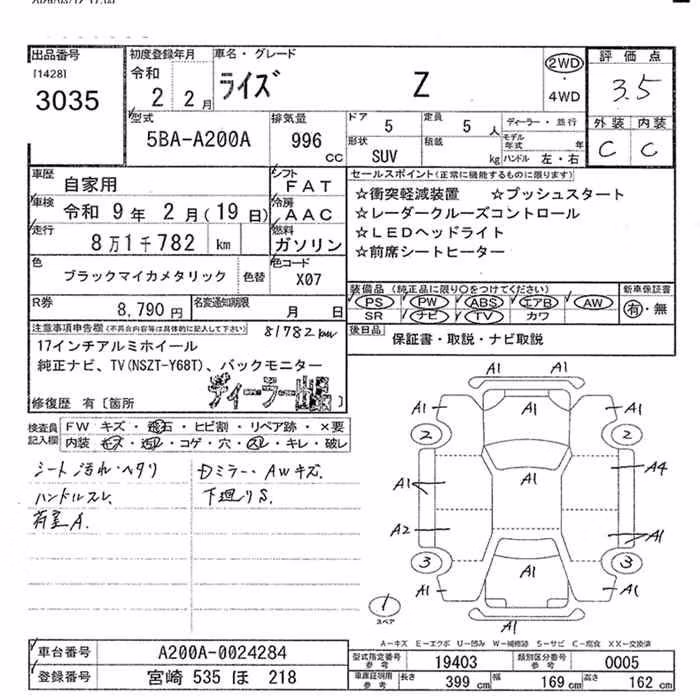 出品番号
[1428]
3035
初度登録年月
令和
2 2月
車名・グレード
ライズ Z
2WD
・
4WD
評価点
3.5
外装 内装
C C
型式
5BA-A200A
排気量
996
cc
ドア
5
定員
5 人
形状
SUV
積載
kg
ディーラー・並行
モデル年式 年
ハンドル 左・右
車歴
自家用
車検 令和 9年 2月(19日)
走行
8万1千782 km
色
ブラックマイカメタリック
色替
R券
8,790 円
名変通知期限
月 日
シフト
FAT
冷房
AAC
燃料
ガソリン
色コード
X07
セールスポイント(正常に機能するものに限ります)
☆衝突軽減装置 ☆プッシュスタート
☆レーダークルーズコントロール
☆LEDヘッドライト
☆前席シートヒーター
装備品(純正品に限り○をつけてください)
PS PW ABS エアB AW
SR ナビ TV カワ
新車保証書
有・無
後日品
保証書・取説・ナビ取説
注意事項申告欄(不具合内容等は具体的に記入して下さい)
81782km
17インチアルミホイール
純正ナビ、TV(NSZT-Y68T)、バックモニター
ディーラー出品
修復歴 有〔箇所 〕
検査員記入欄
FW キズ・飛石・ヒビ割・リペア跡・×要
内装 キズ・汚れ・コゲ・穴・スレ・キレ・破レ
シート汚れ・ヘタリ
ハンドルスレ、
荷室A.
Dミラー・AWキズ.
下廻りS.
A1
A1
A1
A1
2
2
A1
A1
A4
A2
A1
A1
3
3
A1
A1
A1
A1
1
スペア
A-キズ E-エクボ U-凹み W-補修跡 S-サビ C-腐食 XX-交換済
車台番号
A200A-0024284
登録番号
宮崎 535 ほ 218
型式指定番号
参考
19403
類別区分番号
参考
0005
車庫証明用
参考
長さ 399 cm
幅 169 cm
高さ 162 cm